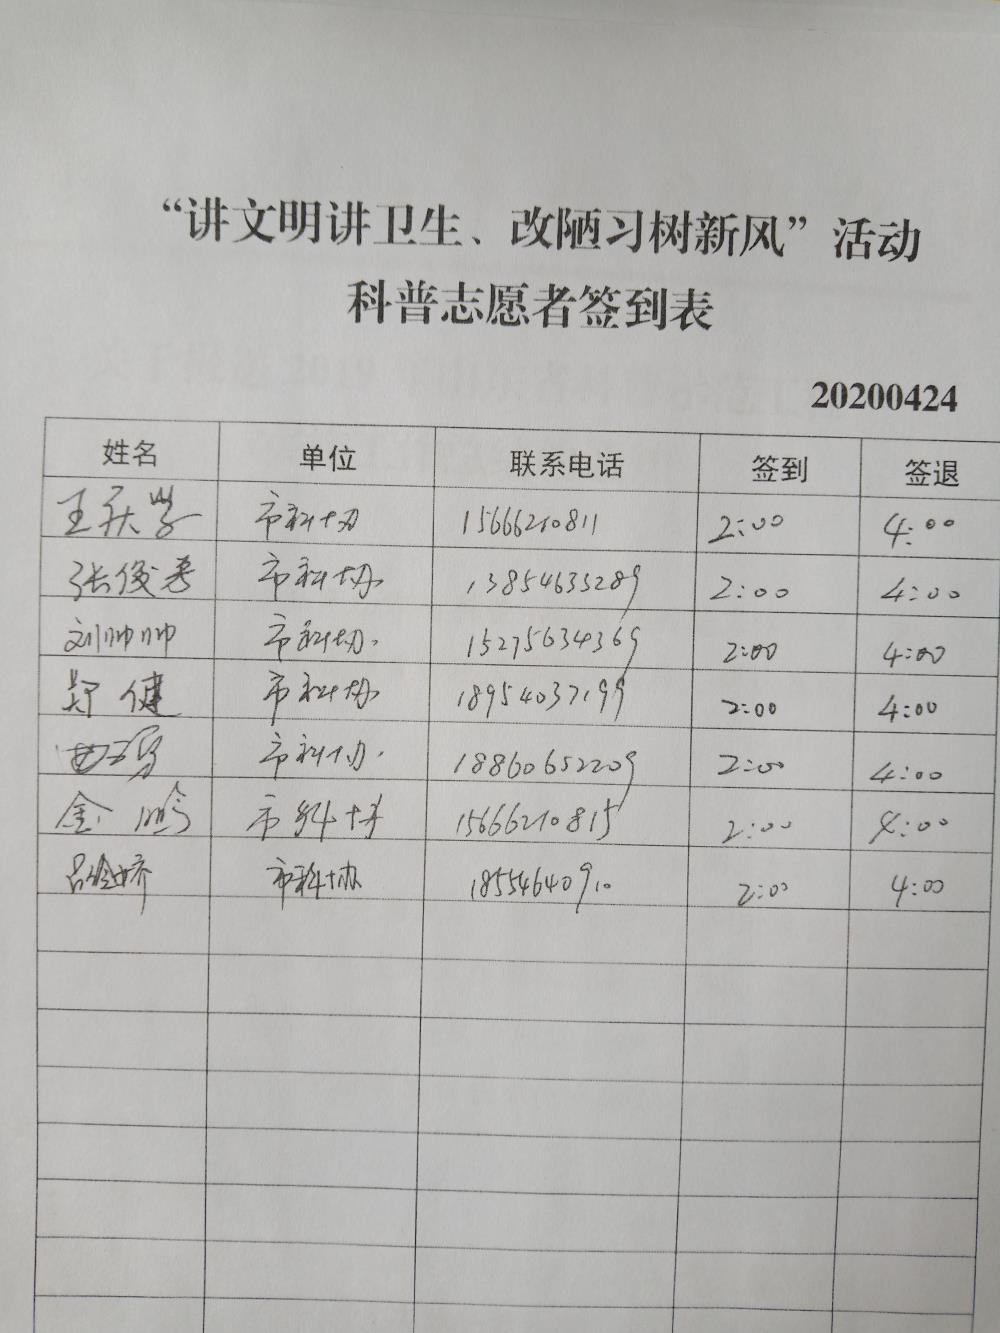 “讲文明讲卫生、改陋习树新风”活动
科普志愿者签到表
20200424
姓名 单位 联系电话 签到 签退
市科协 15666210811 2:00 4:00
张俊春 市科协 13854635289 2:00 4:00
刘帅帅 市科协. 15275634369 2:00 4:00
郑健 市科协 18954037199 2:00 4:00
市科协. 18860652209 2:00 4:00
金鹏 市科协 15666210815 2:00 4:00
市科协 18554640910 2:00 4:00